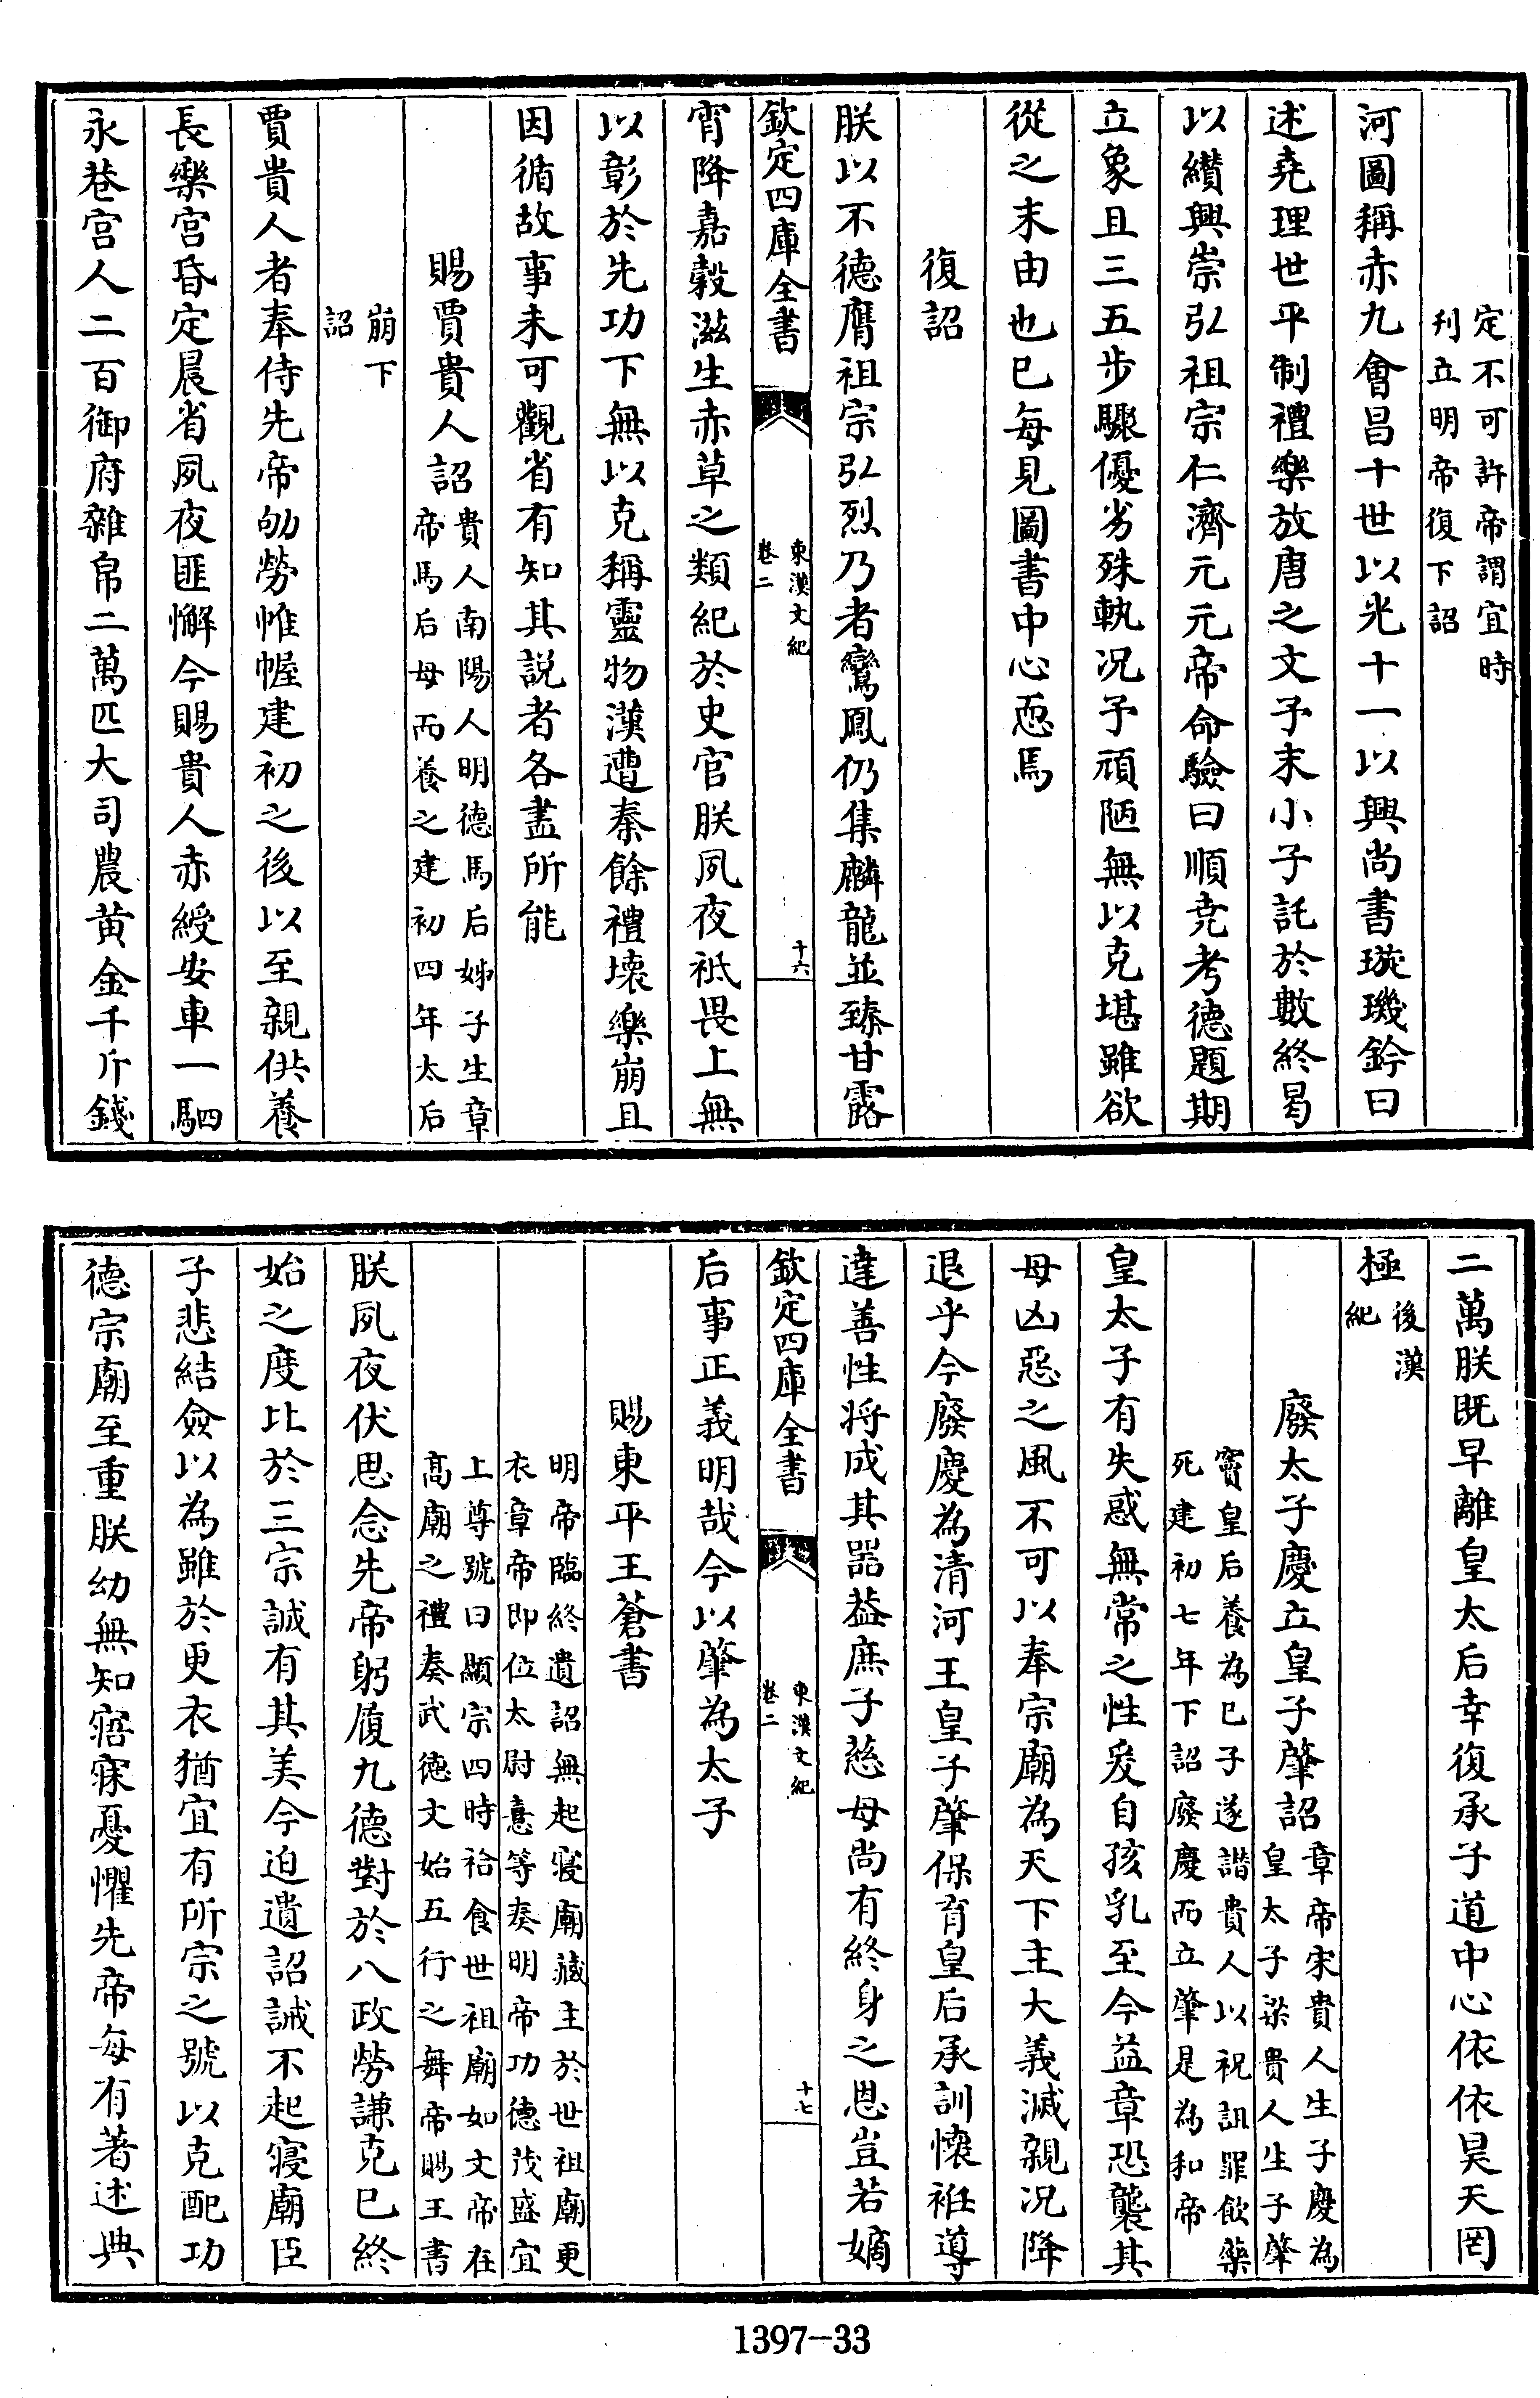 定不可許帝謂宜時
刋立明帝復下詔
河圖稱赤九會昌十世以光十一以興尚書璇璣鈐曰
述堯理世平制禮樂放唐之文予末小子託於數終曷
以纘興崇弘祖宗仁濟元元帝命驗曰順堯考德題期
立象且三五步驟優劣殊軌况予頑陋無以克堪雖欲
從之末由也已每見圖書中心恧焉
復詔
朕以不德膺祖宗弘烈乃者鸞鳳仍集麟龍並臻甘露
欽定四庫全書
東漢文紀
卷二
十六
宵降嘉穀滋生赤草之類紀於史官朕夙夜祗畏上無
以彰於先功下無以克稱靈物漢遭秦餘禮壞樂崩且
因循故事未可觀省有知其説者各盡所能
賜賈貴人詔
貴人南陽人明德馬后姊子生章
帝馬后母而養之建初四年太后
崩下
詔
賈貴人者奉侍先帝劬勞帷幄建初之後以至親供養
長樂宮昏定晨省夙夜匪懈今賜貴人赤綬安車一駟
永巷宮人二百御府雜帛二萬匹大司農黄金千斤錢
二萬朕既早離皇太后幸復承子道中心依依昊天罔
極
後漢
紀
廢太子慶立皇子肇詔
章帝宋貴人生子慶為
皇太子梁貴人生子肇
竇皇后養為已子遂譛貴人以祝詛罪飲藥
死建初七年下詔廢慶而立肇是為和帝
皇太子有失惑無常之性爰自孩乳至今益章恐襲其
母凶惡之風不可以奉宗廟為天下主大義滅親况降
退乎今廢慶為清河王皇子肇保育皇后承訓懷袵導
達善性将成其器葢庶子慈母尚有終身之恩豈若嫡
欽定四庫全書
東漢文紀
卷二
十七
后事正義明哉今以肇為太子
賜東平王蒼書
明帝臨終遺詔無起寢廟藏主於世祖廟更
衣章帝即位太尉憙等奏明帝功德茂盛宜
上尊號曰顯宗四時祫食世祖廟如文帝在
高廟之禮奏武德文始五行之舞帝賜王書
朕夙夜伏思念先帝躬履九德對於八政勞謙克已終
始之度比於三宗誠有其美今迫遺詔誡不起寢廟臣
子悲結僉以為雖於更衣猶宜有所宗之號以克配功
德宗廟至重朕幼無知寤寐憂懼先帝每有著述典
1397-33